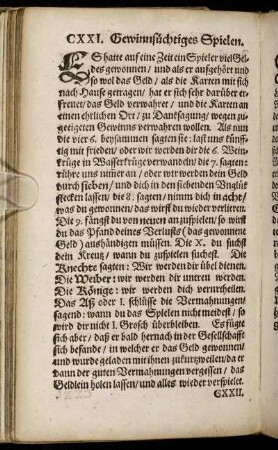 CXXI. Gewinnsüchtiges Spielen.
ES hatte auf eine Zeit ein Spieler viel Gel-
des gewonnen/ und als er aufgehört und
so wol das Geld/ als die Karten mit sich
nach Hause getragen/ hat er sich sehr darüber er-
freuet/ das Geld verwahret/ und die Karten an
einen ehrlichen Ort/ zu Danksagung/ wegen zu-
geeigeten Gewinns verwahren wollen. Als nun
die vier 6. beysammen sagten sie: last uns fünff-
tig mit frieden/ oder wir werden dir die 6. Wein-
krüge in Wasserkrüge verwandeln/ die 7. sagten:
rühre uns nimer an/ oder wir werden dein Geld
durch sieben/ und dich in den siebenden Unglük
stecken lassen/ die 8. sagten/ nimm dich in acht/
was du gewonnen/ das wirst du wieder verlieren.
Die 9. fängst du von neuen anzuspielen/ so wirst
du das Pfand deines Verlusts (das gewonnene
Geld) aushändigen müssen. Die X. du suchst
dein Kreuz/ wann du zuspielen suchest. Die
Knechte sagten: Wir werden dir übel dienen.
Die Weiber: wir werden dir untreu werden.
Die Könige: wir werden dich verurtheilen.
Das Aß oder I. schlüsse die Vermahnungen/
sagend: wann du das Spielen nicht meidest/ so
wird dir nicht I. Grosch überbleiben. Es fügte
sich aber/ daß er bald hernach in der Gesellschafft
sich befande/ in welcher er das Geld gewonnen/
und wurde geladen mit ihnen zukurzweilen/da er
dann der guten Vermahnungen vergessen/ das
Geldlein holen lassen/ und alles wieder verspielet.
CXXII.